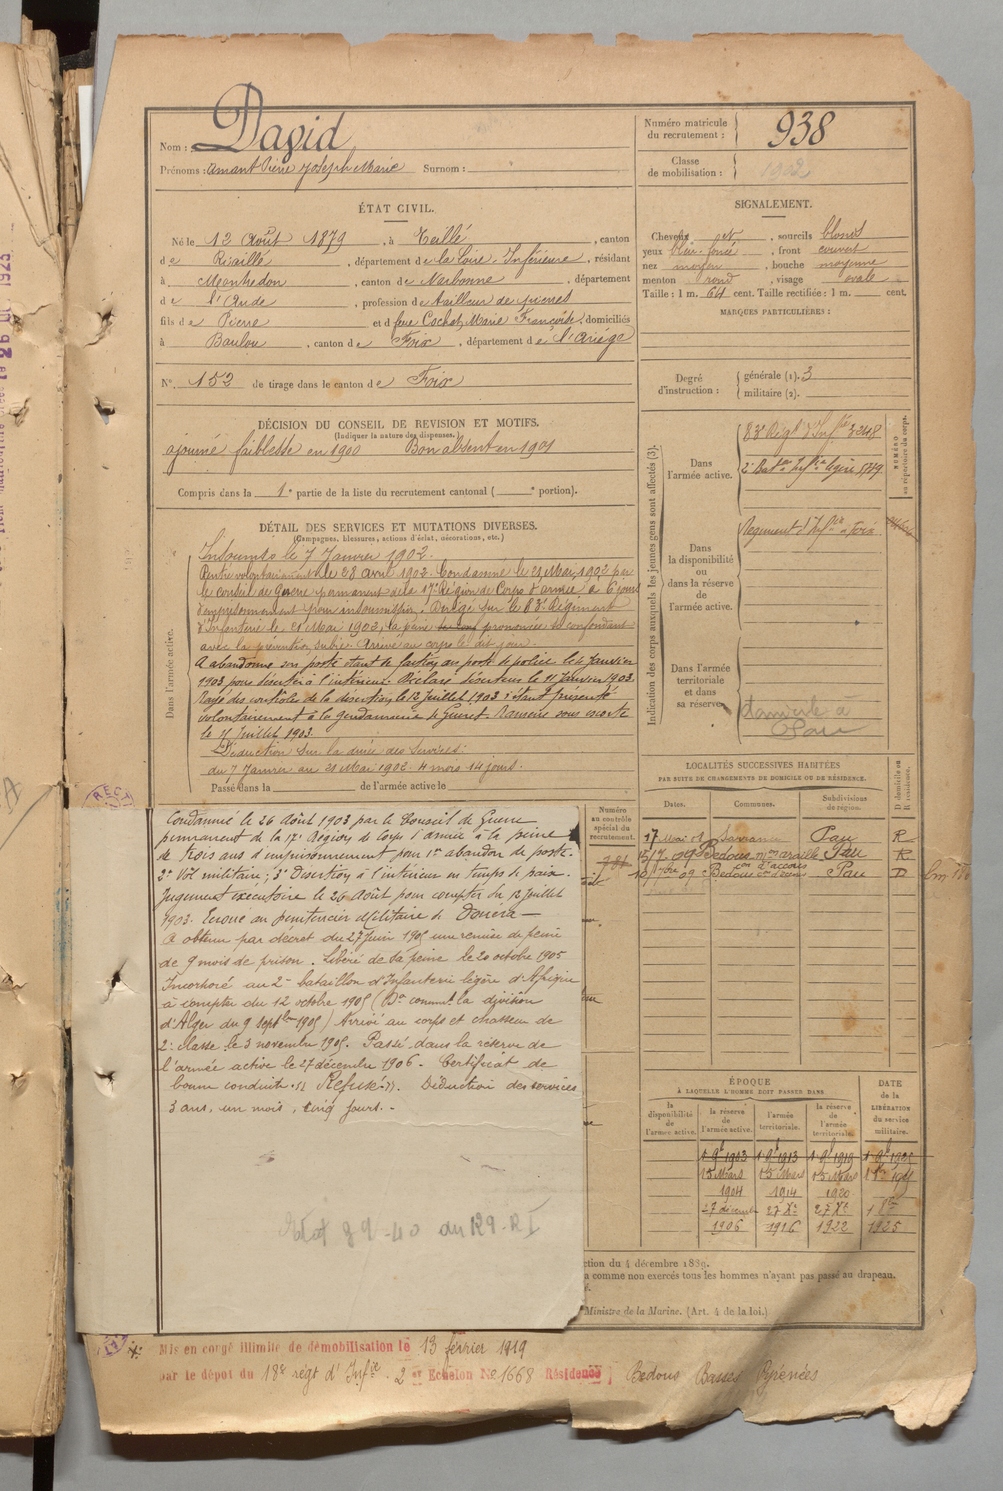 Nom : David
Prénoms : Amant Pierre Joseph Marie Surnom :
Numéro matricule du recrutement : 938
Classe de mobilisation : 1902
ÉTAT CIVIL.
Né le 12 Août 1879, à Teillé, canton
de Riaillé, département de la Loire Inférieure, résidant
à Montredon, canton de Narbonne, département
de l'Aude, profession de tailleur de pierres
fils de Pierre et de feue Cochet Marie Françoise, domiciliés
à Baulou, canton de Foix, département de l'Ariège
N° 152 de tirage dans le canton de Foix
SIGNALEMENT.
Cheveux et, sourcils blonds
yeux bleu-foncé, front couvert
nez moyen, bouche moyenne
menton rond, visage ovale
Taille : 1 m. 64 cent. Taille rectifiée : 1 m. cent.
MARQUES PARTICULIÈRES :
Degré d'instruction : générale (1). 3
militaire (2).
DÉCISION DU CONSEIL DE REVISION ET MOTIFS.
(Indiquer la nature des dispenses.)
ajourné faiblesse en 1900 Bon absent en 1901
Compris dans la 1e partie de la liste du recrutement cantonal ( portion).
DÉTAIL DES SERVICES ET MUTATIONS DIVERSES.
(Campagnes, blessures, actions d'éclat, décorations, etc.)
Dans l'armée active.
Insoumis le 7 Janvier 1902.
Rentré volontairement le 28 avril 1902. Condamné le 21 Mai 1902 par
le conseil de Guerre permanent de la 17e Région de Corps d'armée à 6 jours
d'emprisonnement pour insoumission. Dirigé sur le 83e Régiment
d'Infanterie le 21 Mai 1902, la peine prononcée se confondant
avec la prévention subie. Arrivé au corps le dit jour.
A abandonné son poste étant de faction au poste de police le 4 Janvier
1903 pour déserter à l'intérieur. Déclaré déserteur le 11 Janvier 1903.
Rayé des contrôles de la désertion le 12 Juillet 1903 s'étant présenté
volontairement à la gendarmerie de Guéret. Ramené sous escorte
le Juillet 1903.
Déduction sur la durée des Services :
du 7 Janvier au 21 Mai 1902 4 mois 14 jours.
Passé dans la de l'armée active le
Condamné le 26 Août 1903 par le Conseil de Guerre
permanent de la 17e Région de Corps d'armée à la peine
de trois ans d'emprisonnement pour 1er abandon de poste.
2° Vol militaire ; 3° Désertion à l'intérieur en temps de paix.
Jugement exécutoire le 26 Août pour compter du 12 juillet
1903. Ecroué au pénitencier militaire de Douera –
A obtenu par décret du 27 Juin 1905 une remise de peine
de 9 mois de prison. Libéré de sa peine le 20 octobre 1905
Incorporé au 2e bataillon d'Infanterie légère d'Afrique
à compter du 12 octobre 1905 (Don commt la division
d'Alger du 9 septbre 1905) Arrivé au corps et chasseur de
2e classe le 3 novembre 1905. Passé dans la réserve de
l'armée active le 27 décembre 1906. Certificat de
bonne conduite "Refusé". Déduction des services
3 ans, un mois, cinq jours. -
Indication des corps auxquels les jeunes gens sont affectés (3).
Dans l'armée active.
83e Régt d'Infie 3248
2e Baton Infie légère 5749
NUMÉRO au répertoire du corps.
Dans la disponibilité ou dans la réserve de l'armée active.
Régiment d'Infie de Foix
Dans l'armée territoriale et dans sa réserve
domicile à
Pau
LOCALITÉS SUCCESSIVES HABITÉES
PAR SUITE DE CHANGEMENTS DE DOMICILE OU DE RÉSIDENCE.
Numéro au contrôle spécial du recrutement.
Dates. Communes. Subdivisions de région. D domicile ou R résidence.
17 Mai Sarrance Pau R
09 Bedous Pau R
10 7bre 09 Bedous Pau D
ÉPOQUE
À LAQUELLE L'HOMME DOIT PASSER DANS
la disponibilité de l'armée active. la réserve de l'armée active. l'armée territoriale. la réserve de l'armée territoriale.
DATE de la LIBÉRATION du service militaire.
1903 1913 1919
15 Mars 15 Mars 15 Mars
1904 1914 1920
27 décembre 27 Xe 27 Xe
1906 1916 1922 1925
ction du 4 décembre 1889.
n comme non exercés tous les hommes n'ayant pas passé au drapeau.
Ministre de la Marine. (Art. 4 de la loi.)
Mis en congé illimité de démobilisation le 13 février 1919
par le dépot du 18e régt d'Infie. 2 Echelon No 1668 Résidence Bedous Basses Pyrénées